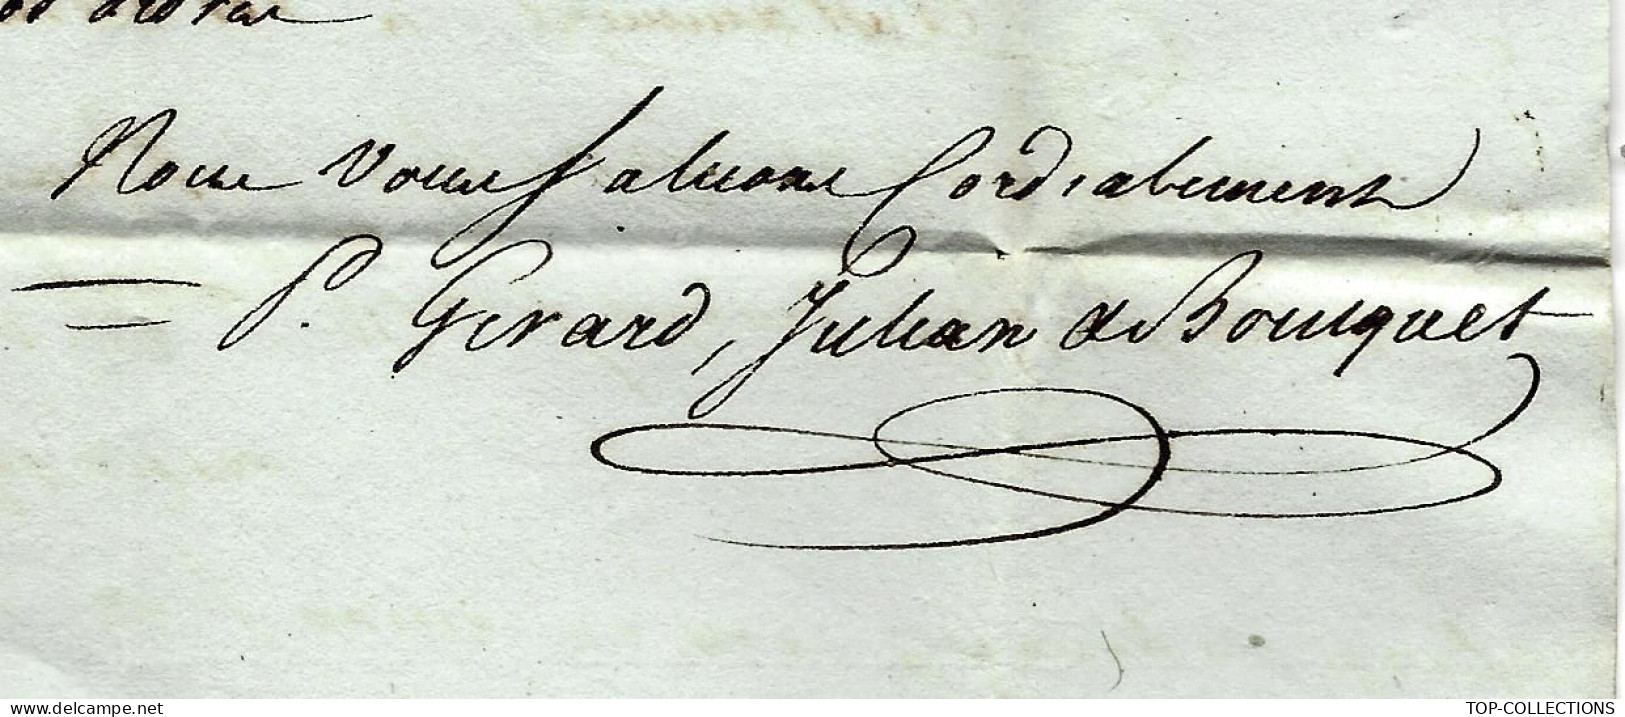 Nous Vous Saluons Cordialement
P. Gerard, Julian & Bousquet
www.delcampe.net
TOP-COLLECTIONS